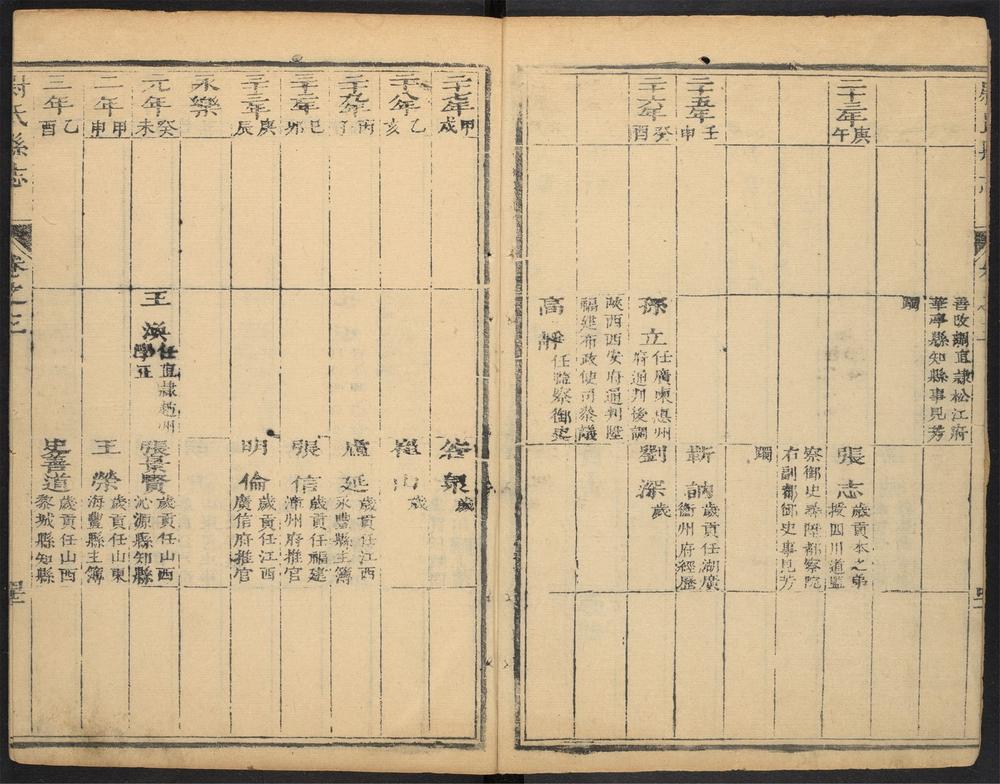 善改調直隸松江府
華亭縣知縣事見芳
躅
二十三年 庚午
張志 歲貢本之弟
授四川道監
察御史泰陞都察院
右副都御史事見芳
躅
二十五年 壬申
靳訥 歲貢任湖廣
衢州府經歷
二十六年 癸酉
孫立 任廣東惠州
府通判後調
陝西西安府通判陞
福建布政使司叅議
劉深 歲
高靜 任監察御史
二十七年 甲戌
泉 歲
二十八年 乙亥
山 歲
二十九年 丙子
延 歲貢任江西
永豐縣主簿
三十二年 巳卯
張信 歲貢任福建
漳州府推官
三十三年 庚辰
明倫 歲貢任江西
廣信府推官
永樂
元年 癸未
王渙 任直隸趙州
學正
張景賢 歲貢任山西
沁源縣知縣
二年 甲申
王榮 歲貢任山東
海豐縣主簿
三年 乙酉
史善道 歲貢任山西
黎城縣知縣
尉氏縣志
卷之三